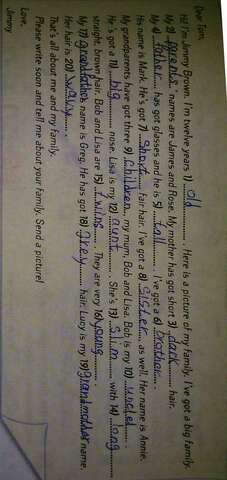 Dear Tom,
Hi! I'm Jimmy Brown. I'm twelve years 1) old. Here is a picture of my family. I've got a big family.
My 2) parents' names are James and Rose. My mother has got short 3) dark hair.
My 4) father has got glasses and he is 5) tall. I've got a 6) brother.
His name is Mark. He's got 7) short fair hair. I've got a 8) sister as well. Her name is Annie.
My grandparents have got three 9) children, my mum, Bob and Lisa. Bob is my 10) uncle.
He's got a 11) big nose. Lisa is my 12) aunt. She's 13) slim with 14) long
straight, brown hair. Bob and Lisa are 15) twins. They are very 16) young.
My 17) grandfather's name is Greg. He has got 18) grey hair. Lucy is my 19) grandmother name.
Her hair is 20) wavy.
That's all about me and my family.
Please write soon and tell me about your family. Send a picture!
Love,
Jimmy